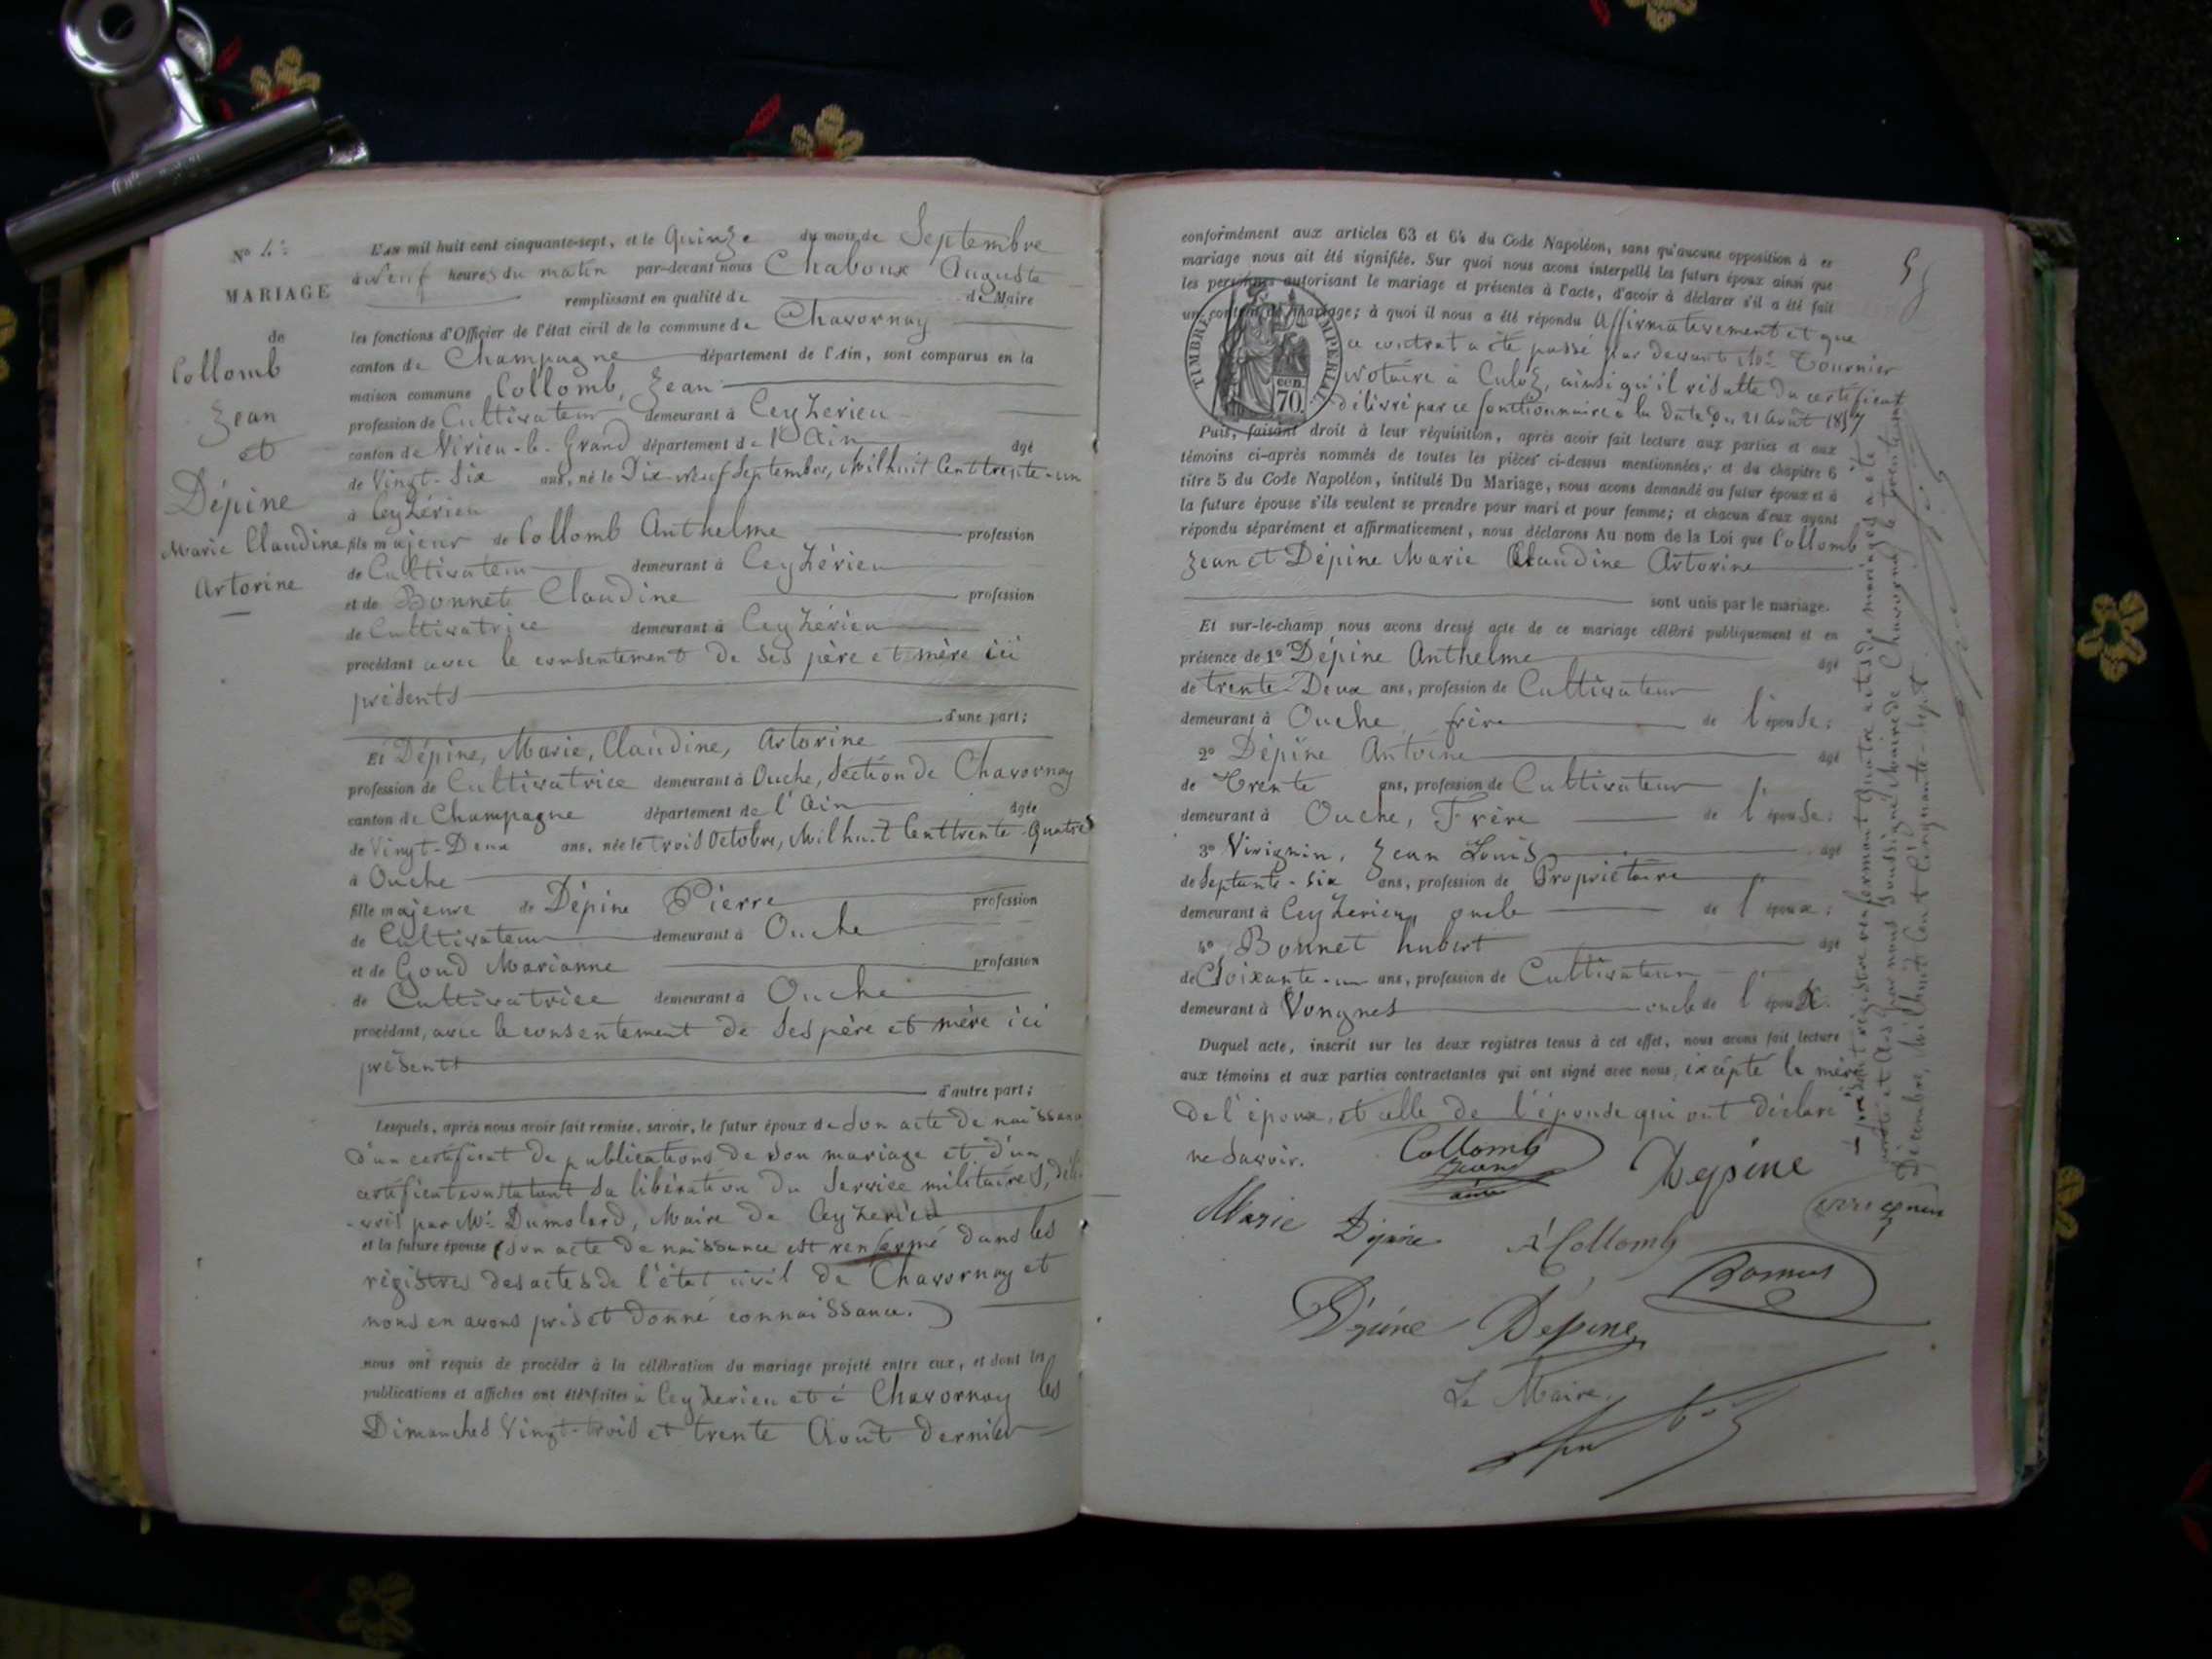 Nº 4:
MARIAGE
de
Collomb
Jean
et
Dépine
Marie Claudine
Artorine
L'AN mil huit cent cinquante-sept, et le Quinze du mois de Septembre
à Neuf heures du matin par-devant nous Chaboux Auguste
remplissant en qualité de de Maire
les fonctions d'Officier de l'état civil de la commune de Chavornay
canton de Champagne département de l'Ain, sont comparus en la
maison commune Collomb, Jean
profession de Cultivateur demeurant à Ceyzerieu
canton de Virieu-le-Grand département de l'Ain âgé
de Vingt-Six ans, né le Dix-neuf Septembre, Milhuit Centtrente-un
à Ceyzérieu
fils majeur de Collomb Anthelme profession
de Cultivateur demeurant à Ceyzérieu
et de Bonnet Claudine profession
de Cultivatrice demeurant à Ceyzérieu
procédant avec le consentement de ses père et mère ici
présents
d'une part;
Et Dépine, Marie, Claudine, Artorine
profession de Cultivatrice demeurant à Ouche, Section de Chavornay
canton de Champagne département de l'Ain âgée
de Vingt-Deux ans, née le trois Octobre, Milhuit Centtrente-Quatre
à Ouche
fille majeure de Dépine Pierre profession
de Cultivateur demeurant à Ouche
et de Goud Marianne profession
de Cultivatrice demeurant à Ouche
procédant, avec le consentement de ses père et mère ici
présents
d'autre part;
Lesquels, après nous avoir fait remise, savoir, le futur époux de Son acte de naissance
d'un certificat de publications de Son mariage et d'un
certificat constatant Sa libération du Service militaire, déli-
-vrés par Mr Dumolard, Maire de Ceyzerieu
et la future épouse (Son acte de naissance est renfermé dans les
régistres des actes de l'état civil de Chavornay et
nous en avons pris et donné connaissance.)
nous ont requis de procéder à la célébration du mariage projeté entre eux, et dont les
publications et affiches ont été faites à Ceyzerieu et à Chavornay les
Dimanches Vingt-trois et trente Août dernier
conformément aux articles 63 et 64 du Code Napoléon, sans qu'aucune opposition à ce
mariage nous ait été signifiée. Sur quoi nous avons interpellé les futurs époux ainsi que
les personnes autorisant le mariage et présentes à l'acte, d'avoir à déclarer s'il a été fait
un contrat de mariage; à quoi il nous a été répondu Affirmativement et que
ce contrat a été passé par devant Me Tournier
Notaire à Culoz, ainsi qu'il résulte du certificat
délivré par ce fonctionnaire à la date du 21 Août 1857
TIMBRE IMPERIAL
70 cen.
Puis, faisant droit à leur réquisition, après avoir fait lecture aux parties et aux
témoins ci-après nommés de toutes les pièces ci-dessus mentionnées, et du chapitre 6
titre 5 du Code Napoléon, intitulé Du Mariage, nous avons demandé au futur époux et à
la future épouse s'ils veulent se prendre pour mari et pour femme; et chacun d'eux ayant
répondu séparément et affirmativement, nous déclarons Au nom de la Loi que Collomb
Jean et Dépine Marie Claudine Artorine
sont unis par le mariage.
Et sur-le-champ nous avons dressé acte de ce mariage célébré publiquement et en
présence de 1º Dépine Anthelme âgé
de trente-Deux ans, profession de Cultivateur
demeurant à Ouche, frère de l'épouse;
2º Dépine Antoine âgé
de Trente ans, profession de Cultivateur
demeurant à Ouche, Frère de l'épouse;
3º Virignin, Jean Louis âgé
de Septante-Six ans, profession de Propriétaire
demeurant à Ceyzerieu, oncle de l'époux;
4º Bonnet hubert âgé
de Soixante-un ans, profession de Cultivateur
demeurant à Vongnes oncle de l'époux.
Duquel acte, inscrit sur les deux registres tenus à cet effet, nous avons fait lecture
aux témoins et aux parties contractantes qui ont signé avec nous, excepté la mère
de l'époux, et celle de l'épouse qui ont déclaré
ne savoir.
Collomb
Dépine
Marie Dépine
A Collomb
Bonnet
Dépine Dépine
Le Maire,
Le présent régistre renfermant Quatre actes de mariages a été
arrêté et clos par nous soussigné Maire de Chavornay le trente un
Décembre, Milhuit Cent Cinquante-Sept.